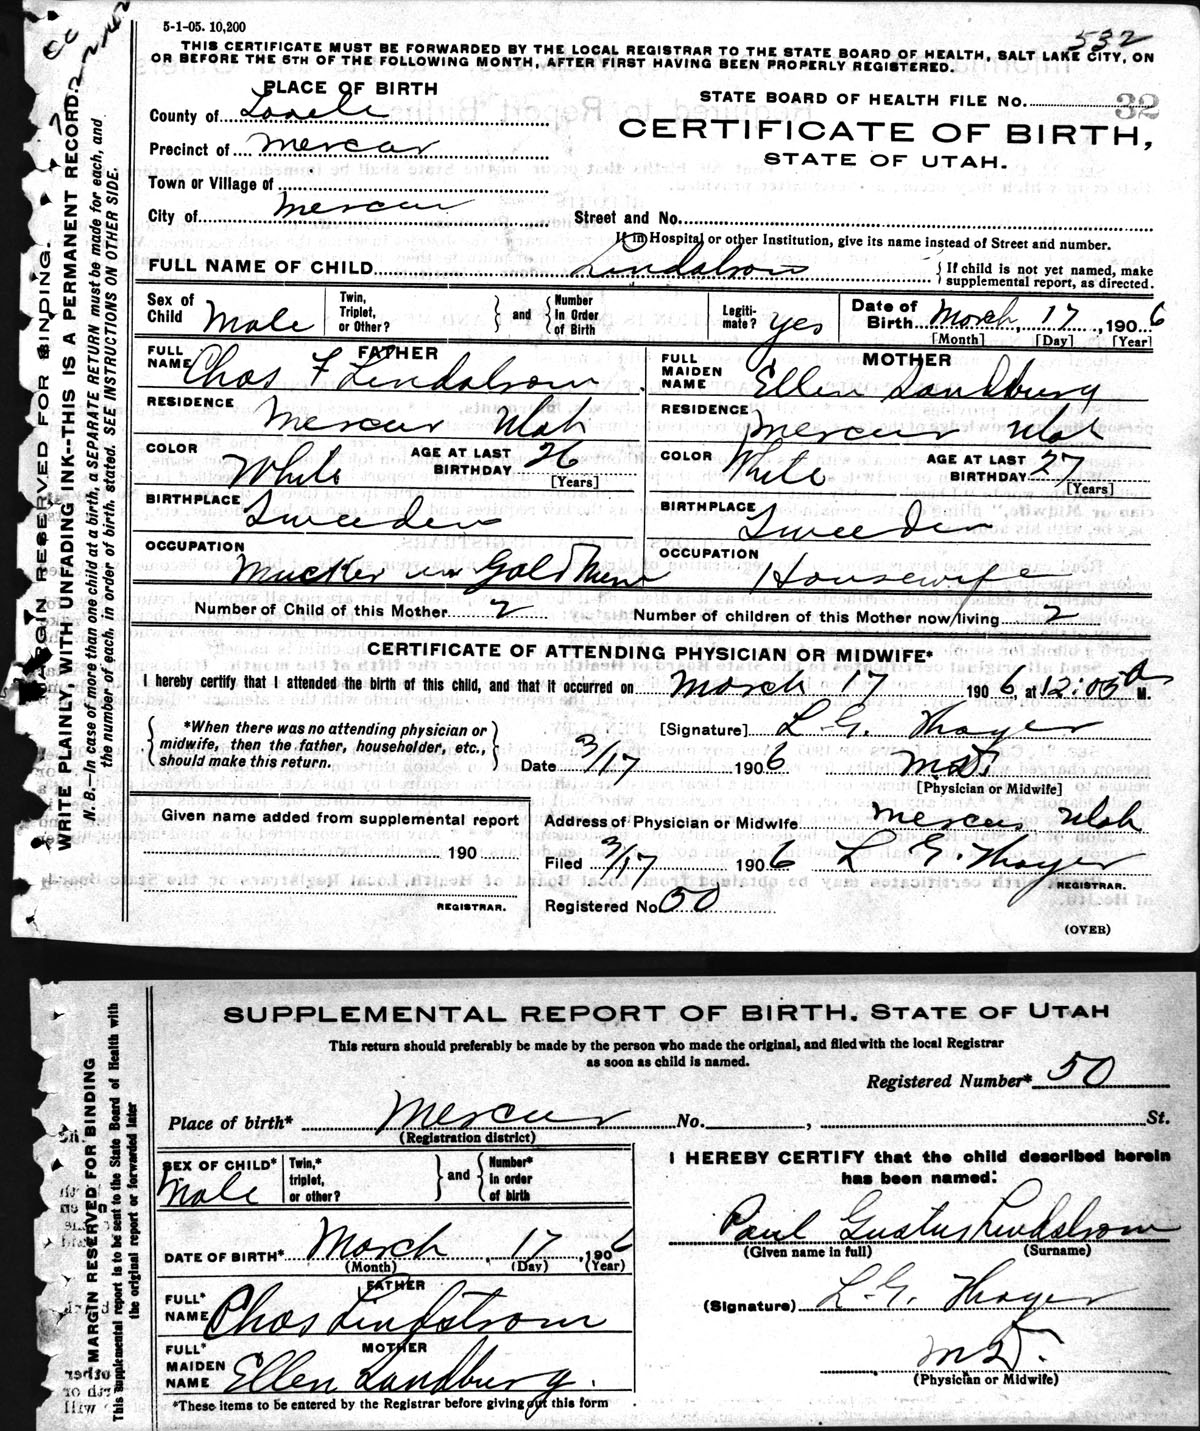 5-1-05. 10,200
532
THIS CERTIFICATE MUST BE FORWARDED BY THE LOCAL REGISTRAR TO THE STATE BOARD OF HEALTH, SALT LAKE CITY, ON
OR BEFORE THE 5TH OF THE FOLLOWING MONTH, AFTER FIRST HAVING BEEN PROPERLY REGISTERED.
PLACE OF BIRTH
STATE BOARD OF HEALTH FILE No. 32
County of Tooele
CERTIFICATE OF BIRTH,
Precinct of Mercur
STATE OF UTAH.
Town or Village of
City of Mercur
Street and No.
If in Hospital or other Institution, give its name instead of Street and number.
FULL NAME OF CHILD Lindstrom
If child is not yet named, make supplemental report, as directed.
Sex of Child Male
Twin, Triplet, or Other?
and
Number In Order of Birth
Legiti-mate? yes
Date of Birth March, 17, 1906
[Month] [Day] [Year]
FATHER
FULL NAME Chas F Lindstrom
MOTHER
FULL MAIDEN NAME Ellen Sandburg
RESIDENCE Mercur Utah
RESIDENCE Mercur Utah
COLOR White AGE AT LAST BIRTHDAY 26 [Years]
COLOR White AGE AT LAST BIRTHDAY 27 [Years]
BIRTHPLACE Sweeden
BIRTHPLACE Sweeden
OCCUPATION Mucker in Gold Mine
OCCUPATION Housewife
Number of Child of this Mother 2 Number of children of this Mother now living 2
CERTIFICATE OF ATTENDING PHYSICIAN OR MIDWIFE*
I hereby certify that I attended the birth of this child, and that it occurred on March 17 1906, at 12:05 A M.
*When there was no attending physician or
midwife, then the father, householder, etc.,
should make this return.
[Signature] L. G. Thayer
Date 3/17 1906 M.D.
[Physician or Midwife]
Given name added from supplemental report
190
REGISTRAR.
Address of Physician or Midwife Mercur Utah
Filed 3/17 1906 L. G. Thayer
REGISTRAR.
Registered No 50
(OVER)
MARGIN RESERVED FOR BINDING.
WRITE PLAINLY, WITH UNFADING INK--THIS IS A PERMANENT RECORD.
N. B.—In case of more than one child at a birth, a SEPARATE RETURN must be made for each, and
the number of each, in order of birth, stated. SEE INSTRUCTIONS ON OTHER SIDE.
SUPPLEMENTAL REPORT OF BIRTH. STATE OF UTAH
This return should preferably be made by the person who made the original, and filed with the local Registrar
as soon as child is named.
Registered Number* 50
Place of birth* Mercur No. , St.
(Registration district)
SEX OF CHILD* Male
Twin,* triplet, or other?
and
Number* in order of birth
I HEREBY CERTIFY that the child described herein
has been named:
Paul Gustus Lindstrom
(Given name in full) (Surname)
DATE OF BIRTH* March, 17, 1906
(Month) (Day) (Year)
FATHER
FULL* NAME Chas Lindstrom
(Signature) L. G. Thayer
MOTHER
FULL* MAIDEN NAME Ellen Sandburg.
M.D.
(Physician or Midwife)
*These items to be entered by the Registrar before giving out this form
MARGIN RESERVED FOR BINDING
This supplemental report is to be sent to the State Board of Health with
the original report or forwarded later